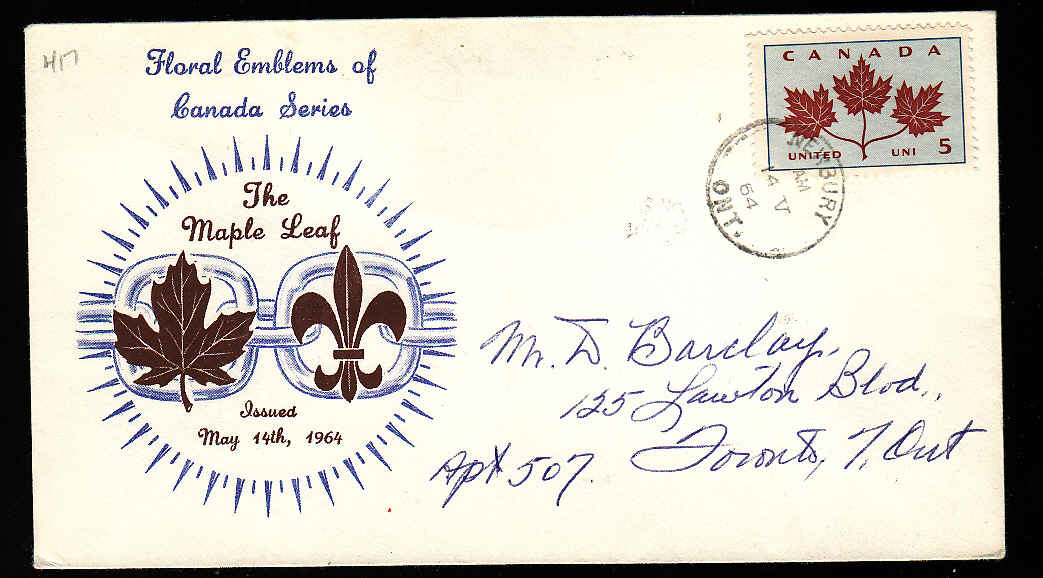 417
Floral Emblems of
Canada Series
The
Maple Leaf
Issued
May 14th, 1964
CANADA
UNITED UNI 5
NEWBURY
AM
14 V
64
ONT.
Mr. D. Barclay,
125 Lawton Blvd.,
Toronto, 7, Ont
Apt 507.